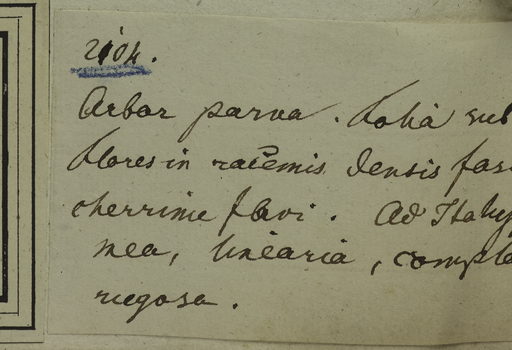 2104.
Arbor parva. Folia sub
Flores in racemis densis fas
cherrime flavi. Ad Itahy
mea, linearia, comple
rugosa.